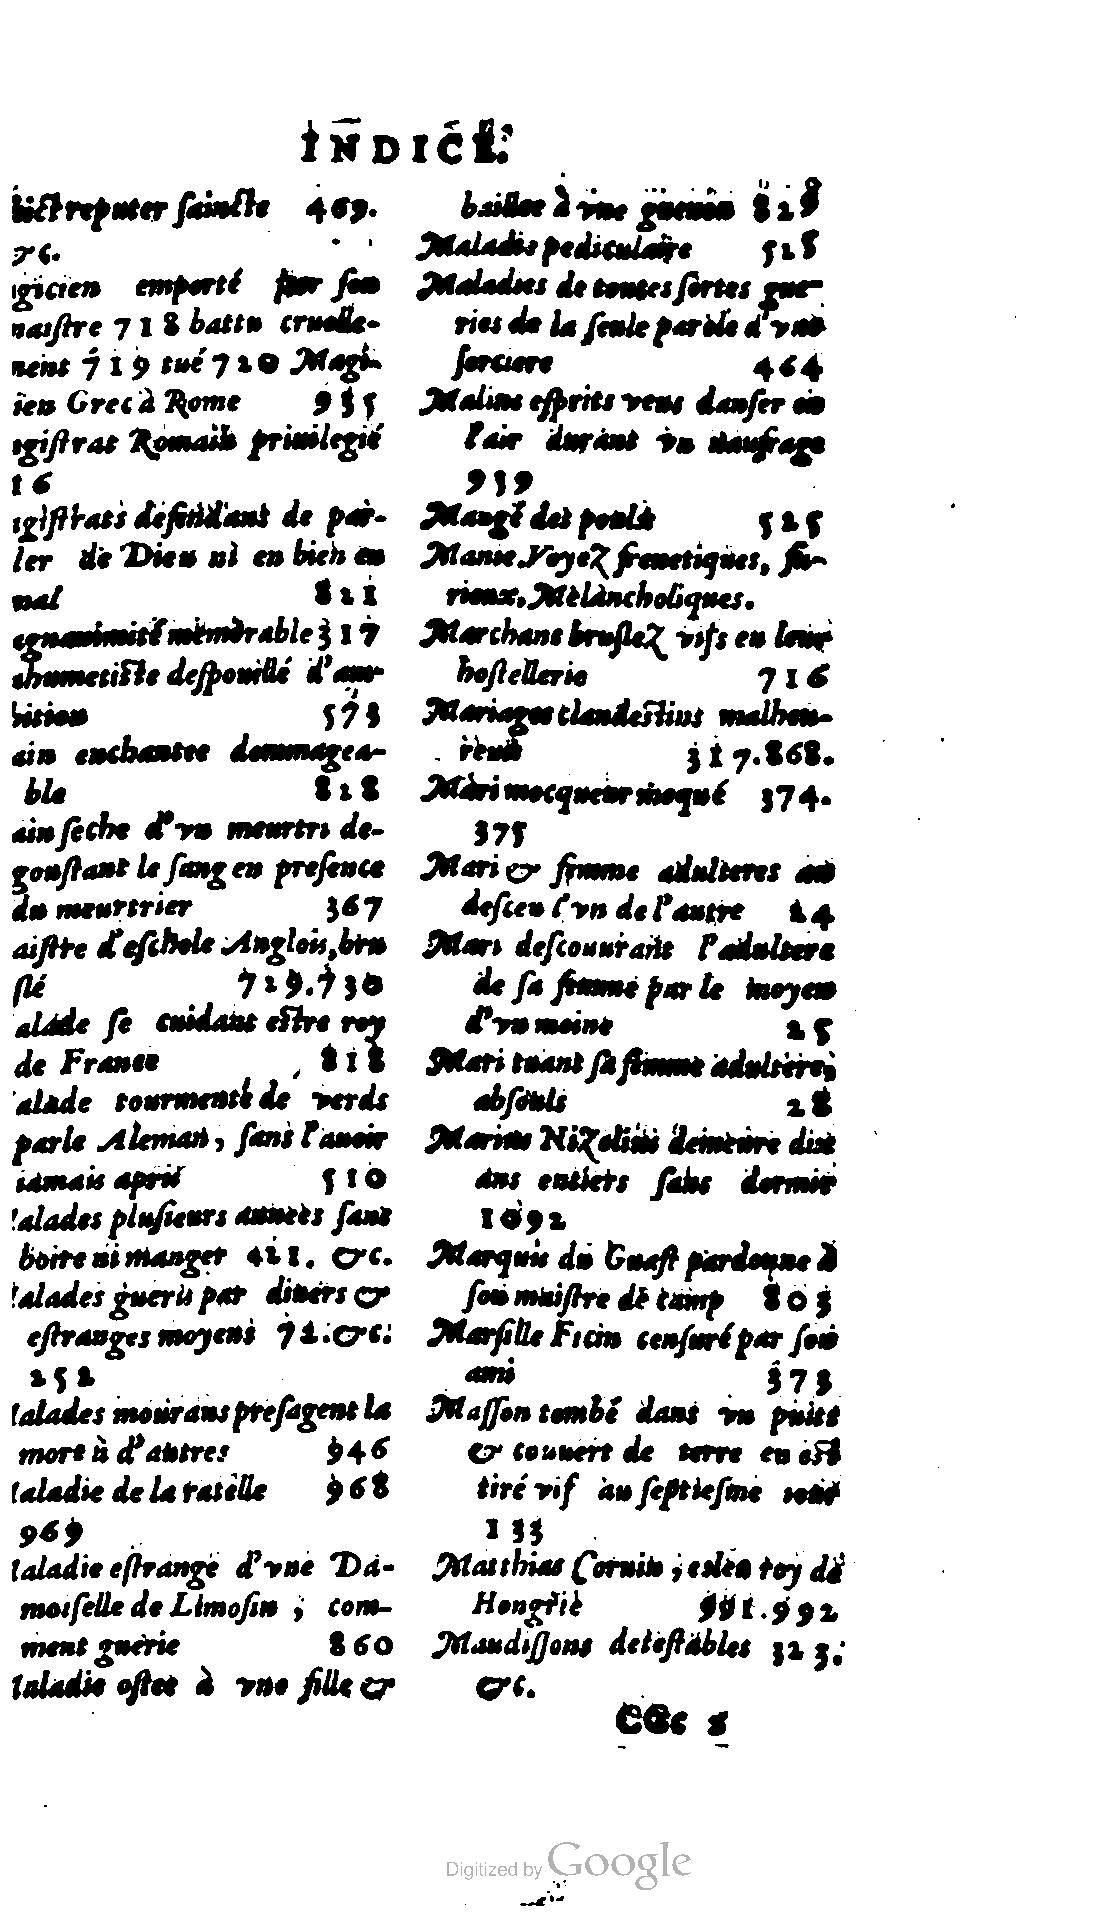 INDICE.
hict reputer ſaincte 469.
&c.
gicien emporté par ſon
naiſtre 718 battu cruelle-
nent 719 tué 720 Magi-
ien Grec à Rome 935
giſtrat Romain priuilegié
16
giſtrats defendans de par-
ler de Dieu ni en bien en
mal 821
agnanimité memorable 317
ahumetiſte deſpouillé d'am-
bition 573
ain enchantee dommagea-
ble 828
ain ſeche d'vn meurtri de-
gouſtant le ſang en preſence
du meurtrier 367
aiſtre d'eſchole Anglois, bru
ſlé 729.730
alade ſe cuidant eſtre roy
de France 818
alade tourmenté de verds
parle Aleman, ſans l'auoir
iamais apris 510
alades pluſieurs annees ſans
boire ni manger 421. &c.
alades gueris par diuers &
eſtranges moyens 72.&c.
252
alades mourans preſagent la
mort à d'autres 946
aladie de la ratelle 968
969
aladie eſtrange d'vne Da-
moiſelle de Limoſin, com-
ment guerie 860
aladie oſtee à vne fille &
baillee à vne guenon 829
Maladie pediculaire 528
Maladies de toutes ſortes gue-
ries de la ſeule parole d'vne
ſorciere 464
Malins eſprits veus danſer en
l'air durant vn naufrage
939
Mangé des poulx 525
Manie. Voyez frenetiques, fu-
rieux, Melancholiques.
Marchans bruſlez vifs en leur
hoſtellerie 716
Mariages clandeſtins malheu-
reux 317.868.
Mari mocqueur moqué 374.
375
Mari & femme adulteres au
deſceu l'vn de l'autre 24
Mari deſcouurant l'adultere
de ſa femme par le moyen
d'vn moine 25
Mari tuant ſa femme adultere,
abſouls 28
Marius Nizolius demeure dix
ans entiers ſans dormir
1092
Marquis du Guaſt pardonne à
ſon maiſtre de camp 803
Marſille Ficin cenſuré par ſon
ami 373
Maſſon tombé dans vn puits
& couuert de terre en eſt
tiré vif au ſeptieſme iour
133
Matthias Coruin, eſleu roy de
Hongrie 991.992
Maudiſſons deteſtables 323.
&c.
CCc 2
Digitized by Google